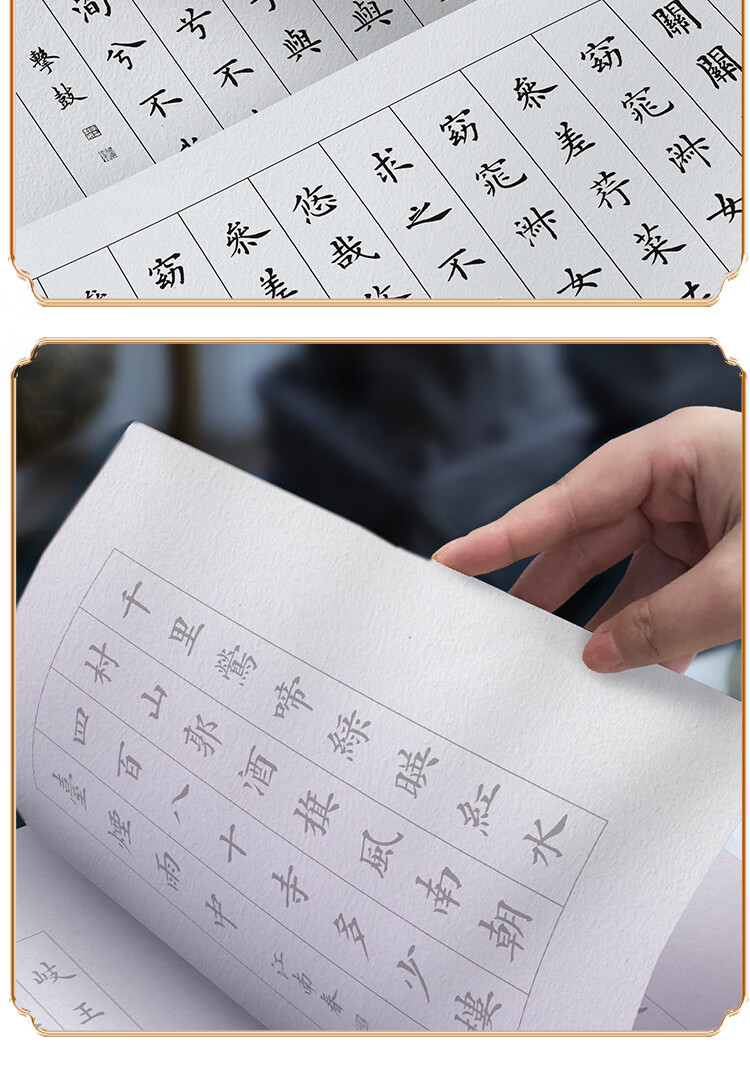 與
與
兮不
洵兮不
擊鼓
關關
窈窕淑女
參差荇菜
窈窕淑女
求之不
悠哉
參差
窈
千里鶯啼綠暎紅水
村山郭酒旗風南朝
四百八十寺多少樓
臺煙雨中
江南春
岐王